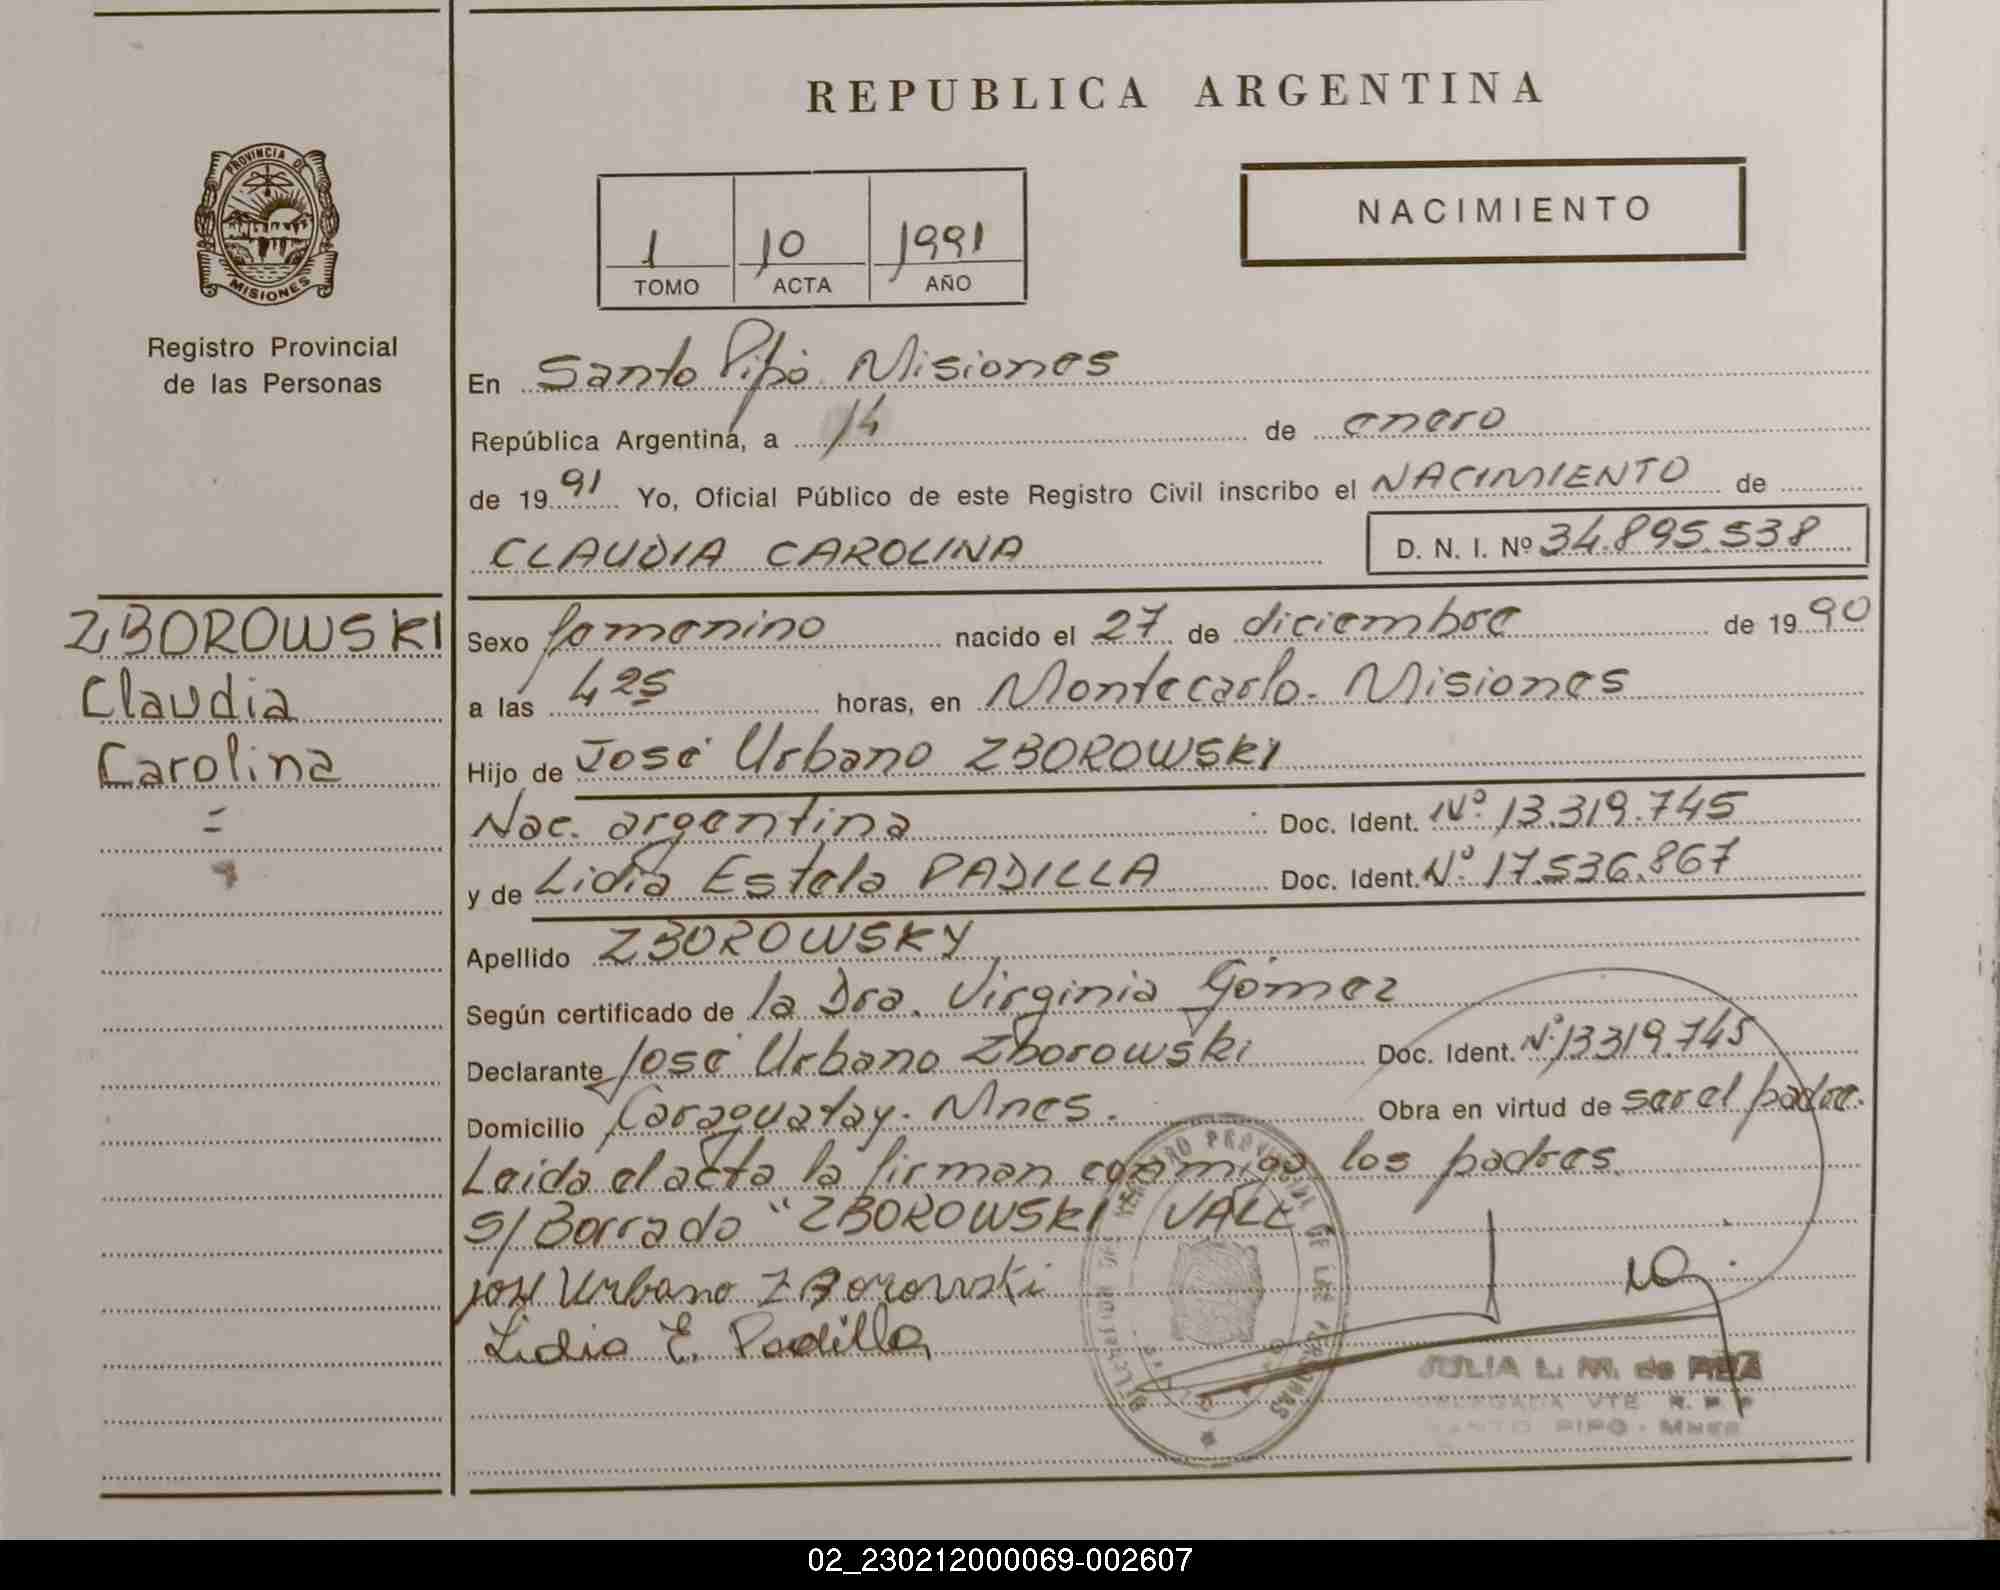 REPUBLICA ARGENTINA
PROVINCIA DE
MISIONES
Registro Provincial
de las Personas
1 10 1991
TOMO ACTA AÑO
NACIMIENTO
En Santo Pipó Misiones
República Argentina, a 14 de enero
de 1991 Yo, Oficial Público de este Registro Civil inscribo el NACIMIENTO de
CLAUDIA CAROLINA D. N. I. Nº 34.895.538
ZBOROWSKI
Claudia
Carolina
=
Sexo femenino nacido el 27 de diciembre de 1990
a las 4 25 horas, en Montecarlo. Misiones
Hijo de José Urbano ZBOROWSKI
Nac. argentina Doc. Ident. Nº 13.319.745
y de Lidia Estela PADILLA Doc. Ident. Nº 17.536.867
Apellido ZBOROWSKY
Según certificado de la Dra. Virginia Gómez
Declarante José Urbano Zborowski Doc. Ident. Nº 13319.745
Domicilio Caraguatay. Mnes. Obra en virtud de ser el padre.
Leida el acta la firman conmigo los padres.
S/Borrado "ZBOROWSKI VALE
José Urbano Zborowski
Lidia E. Padilla
JULIA L. M. de
DELEGADA VTE R. P. P
SANTO PIPO - MNES
02_230212000069-002607